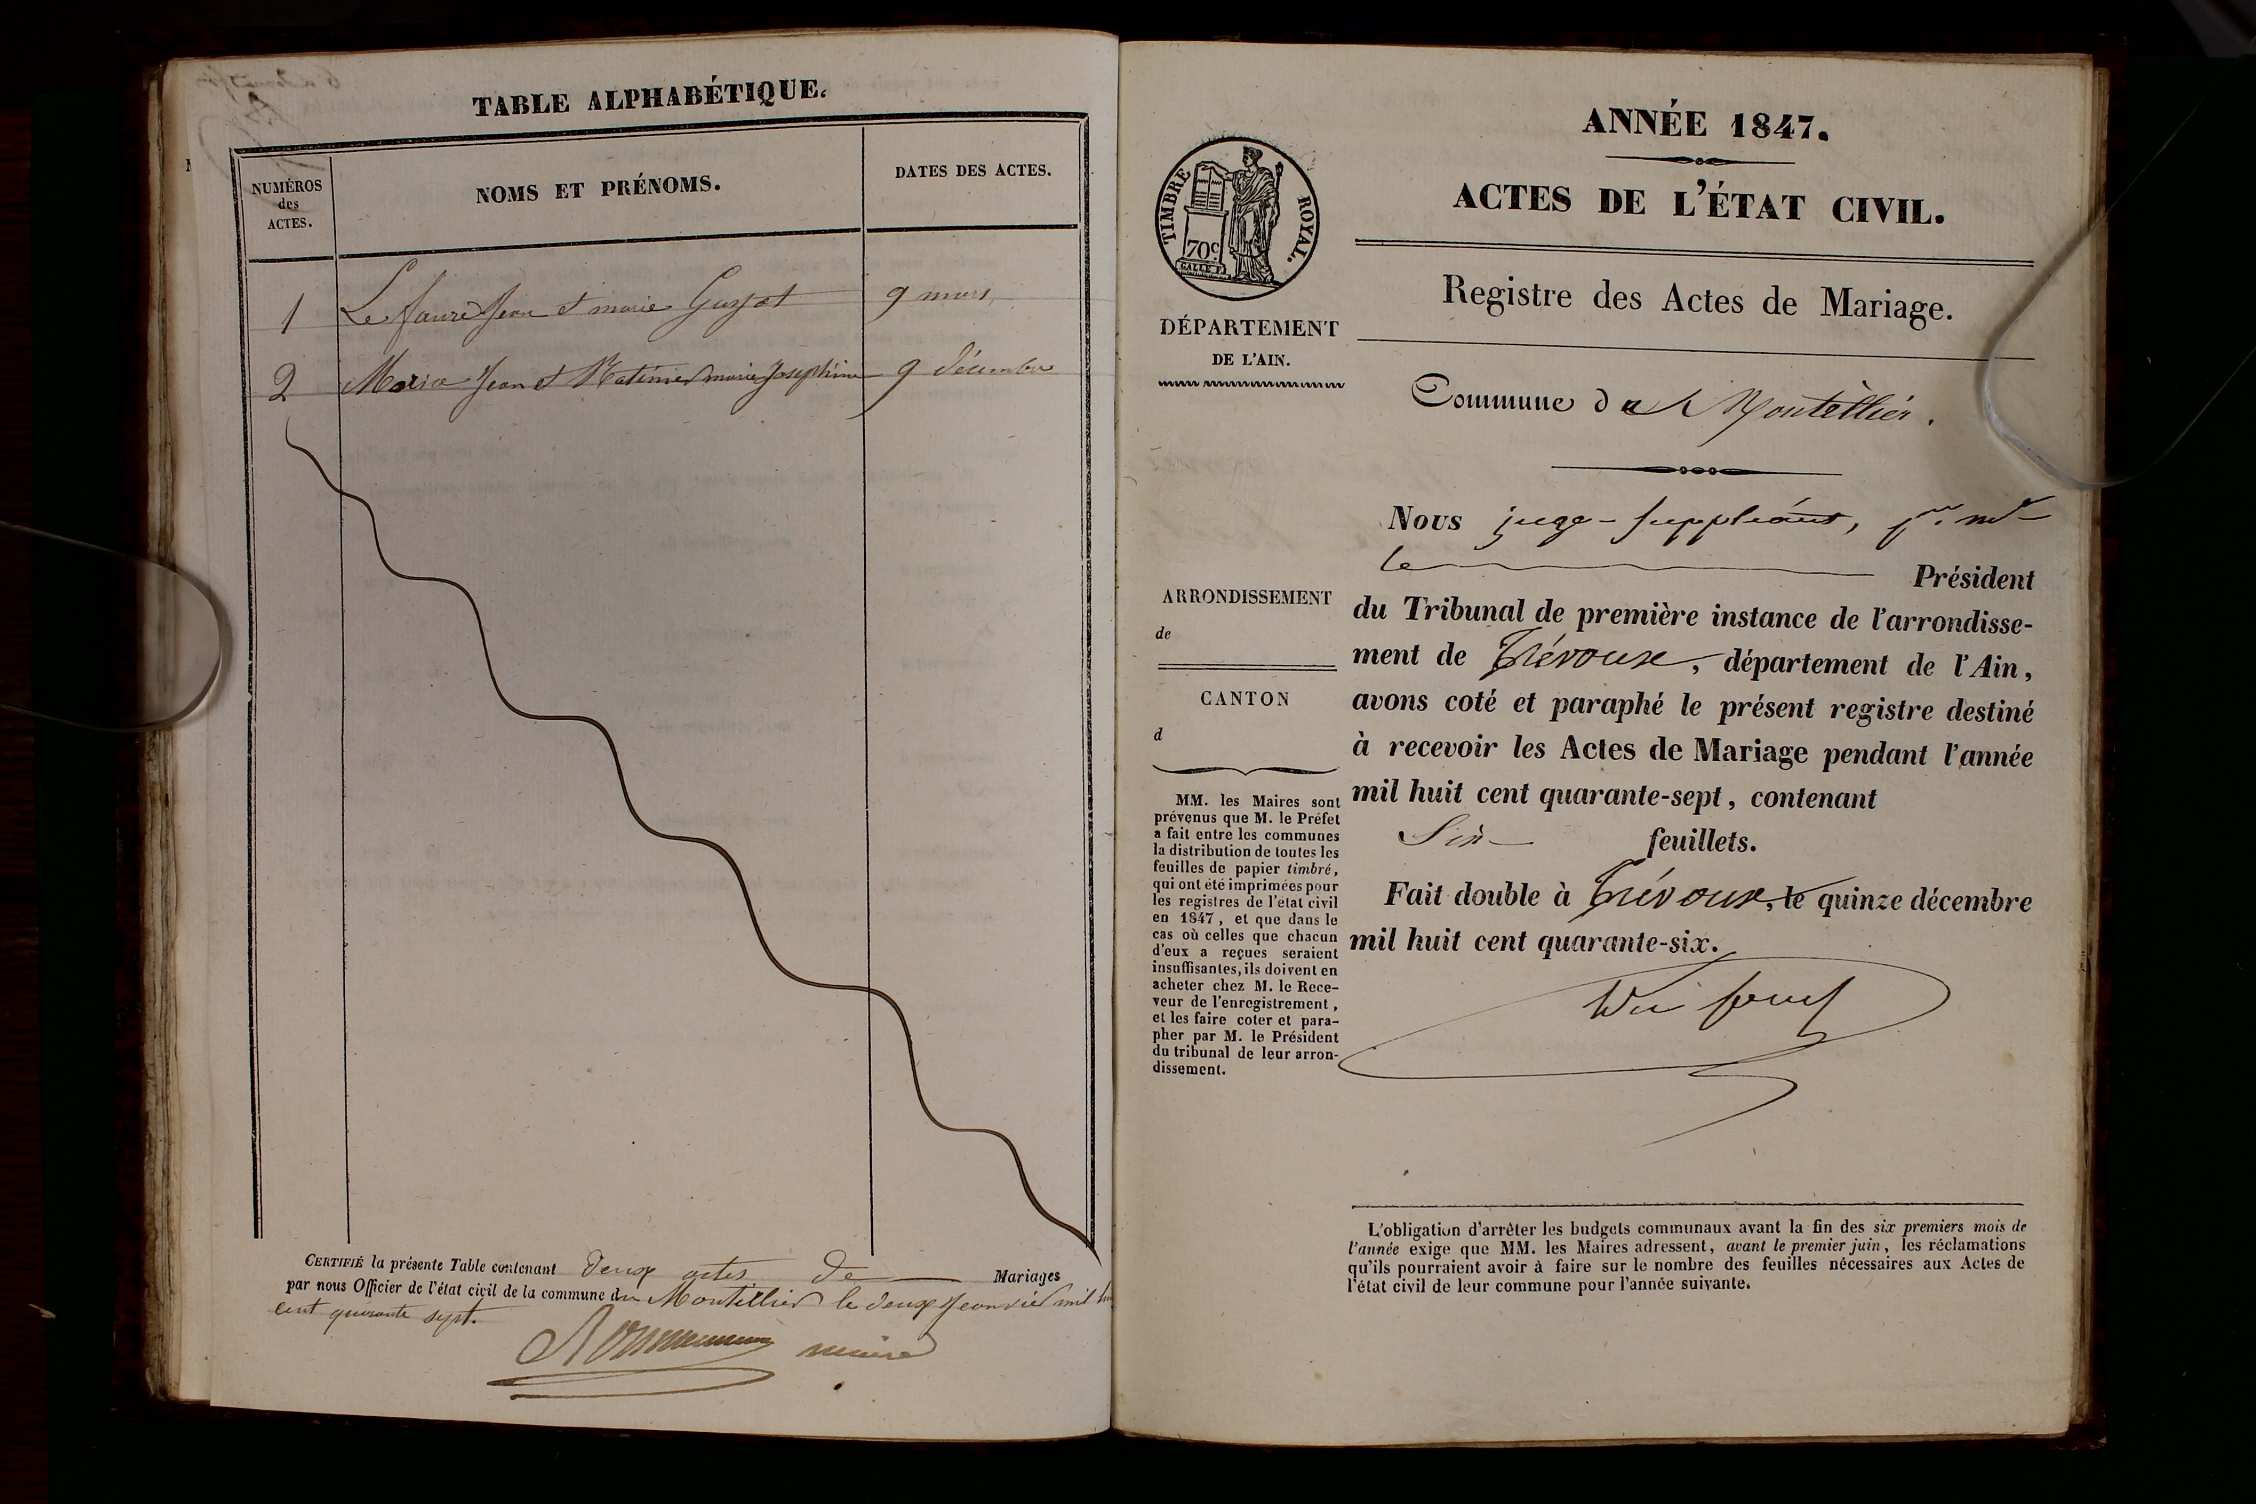 TABLE ALPHABÉTIQUE.
NUMÉROS
des
ACTES.
NOMS ET PRÉNOMS.
DATES DES ACTES.
1 Lefaure Jean et marie Guyot 9 mars
2 Jean et marie Josephine 9 décembre
CERTIFIÉ la présente Table contenant deux actes de Mariages
par nous Officier de l'état civil de la commune du Montellier le deux Janvier mil
cent quarante sept.
maire
ANNÉE 1847.
ACTES DE L'ÉTAT CIVIL.
TIMBRE ROYAL.
70c
Registre des Actes de Mariage.
DÉPARTEMENT
DE L'AIN.
Commune du Montellier.
Nous juge-suppléant,
le Président
du Tribunal de première instance de l'arrondisse-
ment de Trévoux, département de l'Ain,
avons coté et paraphé le présent registre destiné
à recevoir les Actes de Mariage pendant l'année
mil huit cent quarante-sept, contenant
Six feuillets.
Fait double à Trévoux, le quinze décembre
mil huit cent quarante-six.
ARRONDISSEMENT
de
CANTON
d
MM. les Maires sont
prévenus que M. le Préfet
a fait entre les communes
la distribution de toutes les
feuilles de papier timbré,
qui ont été imprimées pour
les registres de l'état civil
en 1847, et que dans le
cas où celles que chacun
d'eux a reçues seraient
insuffisantes, ils doivent en
acheter chez M. le Rece-
veur de l'enregistrement,
et les faire coter et para-
pher par M. le Président
du tribunal de leur arron-
dissement.
L'obligation d'arrêter les budgets communaux avant la fin des six premiers mois de
l'année exige que MM. les Maires adressent, avant le premier juin, les réclamations
qu'ils pourraient avoir à faire sur le nombre des feuilles nécessaires aux Actes de
l'état civil de leur commune pour l'année suivante.